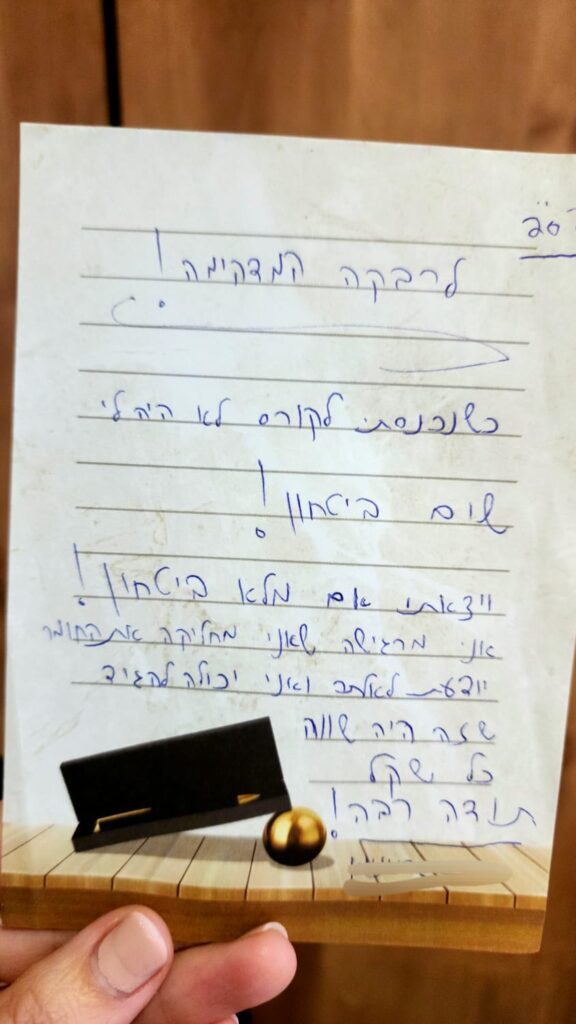 בס"ד
לרבקה המדהימה!
כשנכנסתי לקורס לא היה לי
שום ביטחון!
ויצאתי אם מלא ביטחון!
אני מרגישה שאני מחליקה את החומר
יודעת לאלתר ואני יכולה להגיד
שזה היה שווה
כל שקל
תודה רבה!